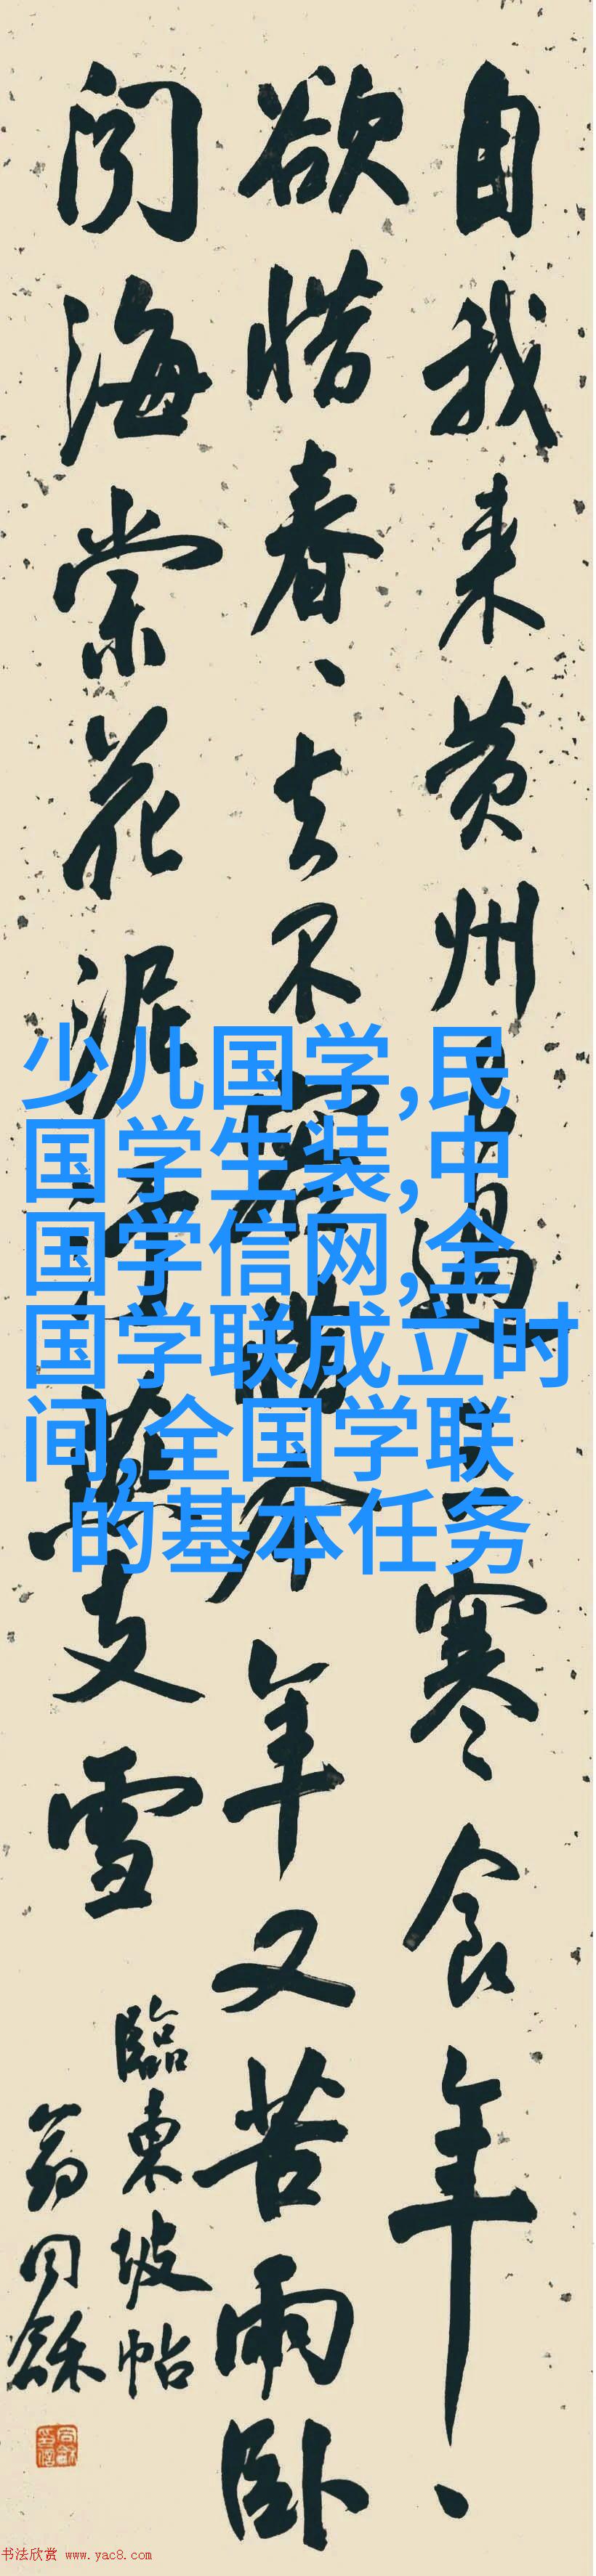 自我来黄州已過三寒食年、
欲惜春、去不容惜今年又苦雨卧
闻海棠花泥汙燕支雪
臨東坡帖
翁同龢
少儿国学,民
国学生装,中
国学信网,全
国学联成立时
间,全国学联
的基本任务
书法欣赏 www.yac8.com